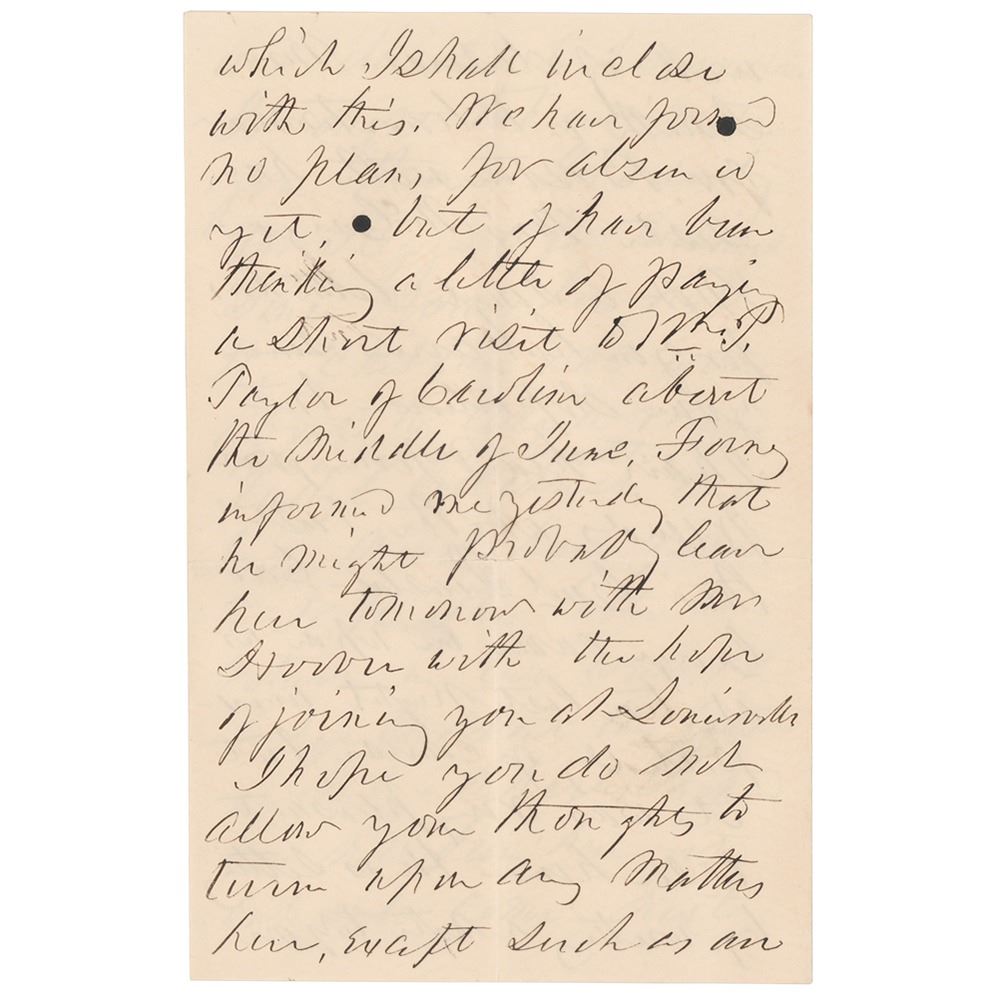 which I shall inclose
with this. We have formed
no plans, for absence
yet, but I have been
thinking a little of paying
a short visit to Wm. P.
Taylor of Caroline about
the Middle of June. Forney
informed me yesterday that
he might probably leave
here tomorrow with Mrs
Hoover with the hope
of joining you at Louisville
I hope you do not
allow your thoughts to
turn upon any Matters
here, except such as are